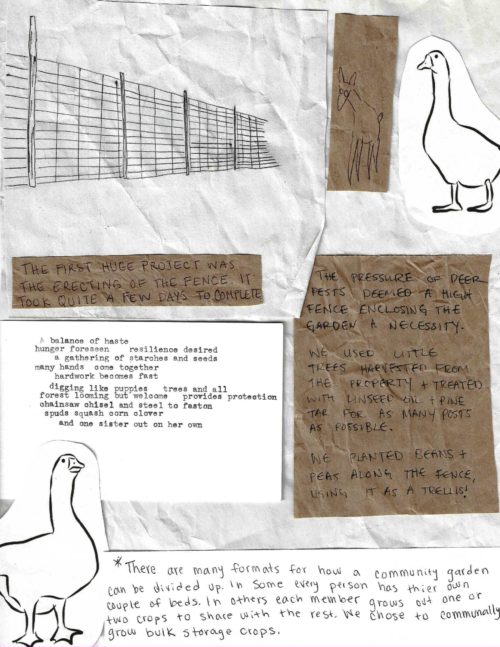 THE FIRST HUGE PROJECT WAS
THE ERECTING OF THE FENCE. IT
TOOK QUITE A FEW DAYS TO COMPLETE
THE PRESSURE OF DEER
PESTS DEEMED A HIGH
FENCE ENCLOSING THE
GARDEN A NECESSITY.
WE USED LITTLE
TREES HARVESTED FROM
THE PROPERTY + TREATED
WITH LINSEED OIL + PINE
TAR FOR AS MANY POSTS
AS POSSIBLE.
WE PLANTED BEANS +
PEAS ALONG THE FENCE,
USING IT AS A TRELLIS!
A balance of haste
hunger foreseen resilience desired
a gathering of starches and seeds
many hands come together
hardwork becomes fast
digging like puppies trees and all
forest looming but welcome provides protection
chainsaw chisel and steel to fasten
spuds squash corn clover
and one sister out on her own
*There are many formats for how a community garden
can be divided up. In some every person has thier own
couple of beds. In others each member grows out one or
two crops to share with the rest. We chose to communally
grow bulk storage crops.